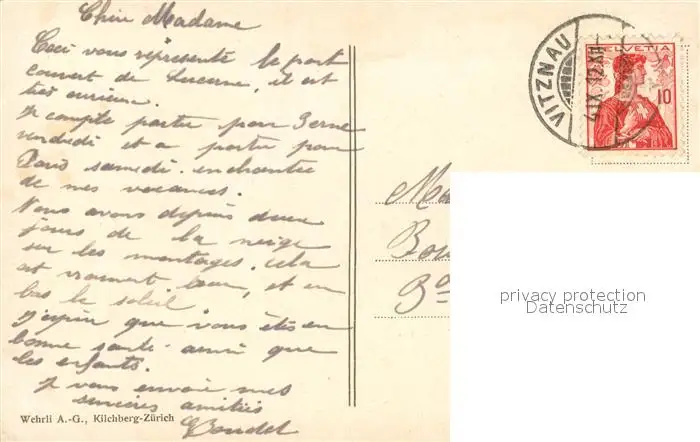 Chère Madame
Ceci vous représente le pont
couvert de Lucerne, il est
très curieux.
Je compte partir pour Berne
vendredi et a partir pour
Paris samedi. enchantée
de mes vacances.
Nous avons depuis deux
jours de la neige
sur les montages. cela
est vraiment beau, et en
bas le soleil
J'espère que vous êtes en
bonne santé ainsi que
les enfants.
Je vous envoie mes
sincères amitiés
Wehrli A.-G., Kilchberg-Zürich
VITZNAU
HELVETIA
10
Ma
Bou
privacy protection
Datenschutz